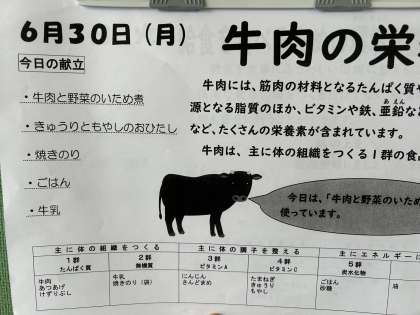 6月30日（月）
牛肉の栄
今日の献立
・牛肉と野菜のいため煮
・きゅうりともやしのおひたし
・焼きのり
・ごはん
・牛乳
牛肉には、筋肉の材料となるたんぱく質や
源となる脂質のほか、ビタミンや鉄、亜鉛な
あえん
など、たくさんの栄養素が含まれています。
牛肉は、主に体の組織をつくる１群の食
今日は、「牛肉と野菜のいため
使っています。
主に体の組織をつくる
主に体の調子を整える
主にエネルギーに
１群
たんぱく質
２群
無機質
３群
ビタミンA
４群
ビタミンC
５群
炭水化物
牛肉
あつあげ
けずりぶし
牛乳
焼きのり（袋）
にんじん
さんどまめ
たまねぎ
きゅうり
もやし
ごはん
砂糖
油